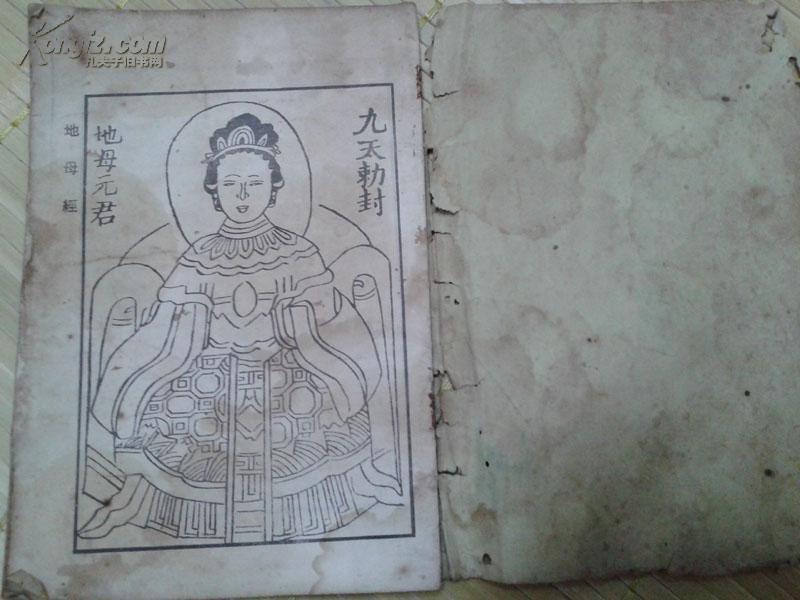 Kongfz.com
孔夫子旧书网
九天勅封
地母元君
地母經